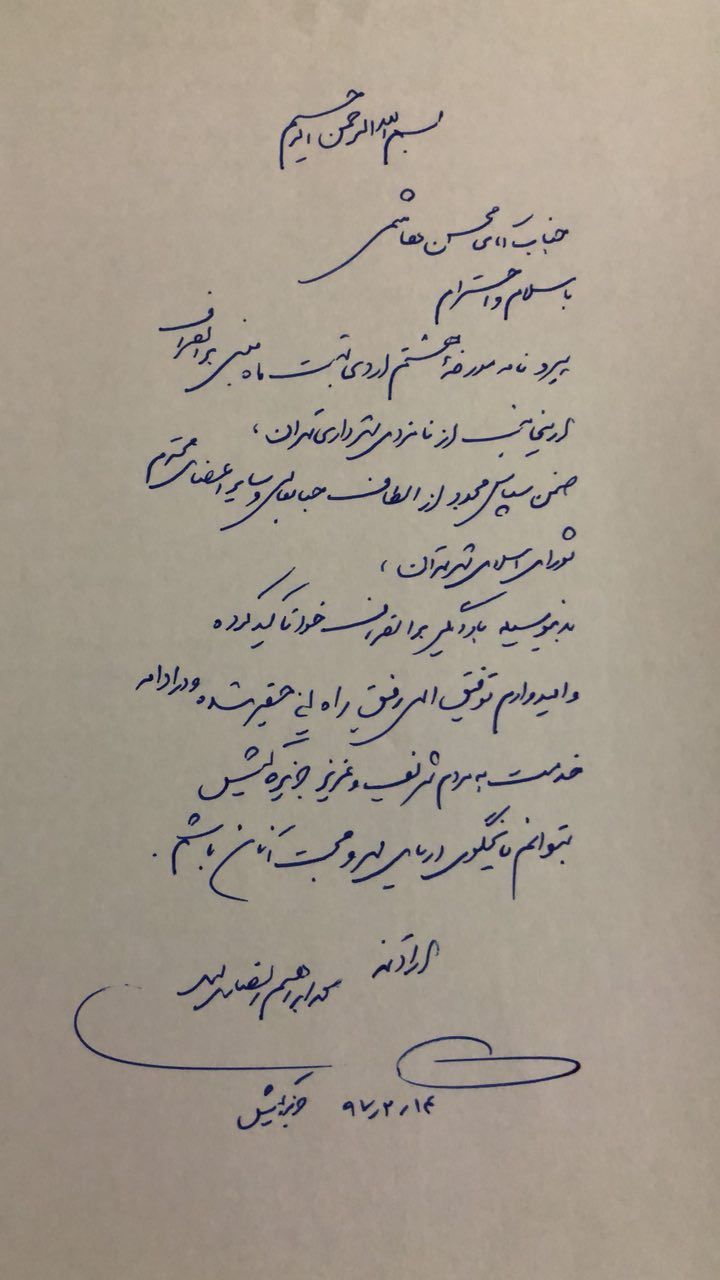 بسم الله الرحمن الرحیم
جناب آقای محسن هاشمی
با سلام و احترام
پیرو نامه مورخهٔ هشتم اردیبهشت ماه مبنی بر انصراف
اینجانب از نامزدی شهرداری تهران،
ضمن سپاس مجدد از الطاف جنابعالی و سایر اعضای محترم
شورای اسلامی شهر تهران،
بدینوسیله بار دیگر بر انصراف خود تاکید کرده
و امیدوارم توفیق الهی رفیق راه این حقیر شده و در ادامه
خدمت به مردم شریف و عزیز جزیره کیش
بتوانم پاسخگوی دریای مهر و محبت آنان باشم.
ارادتمند
محمد ابراهیم انصاری لاری
۹۷٫۲٫۱۴ جزیره کیش